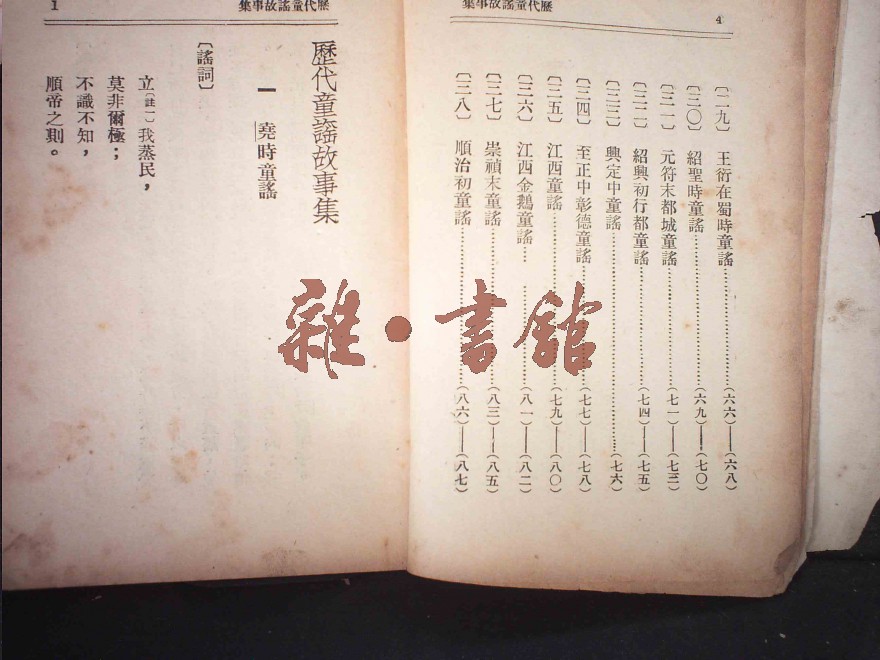 歷代童謠故事集
4
〔二九〕 王衍在蜀時童謠…………(六六)——(六八)
〔三〇〕 紹聖時童謠…………(六九)——(七〇)
〔三一〕 元符末都城童謠…………(七一)——(七三)
〔三二〕 紹興初行都童謠…………(七四)——(七五)
〔三三〕 興定中童謠…………(七六)
〔三四〕 至正中彰德童謠…………(七七)——(七八)
〔三五〕 江西童謠…………(七九)——(八〇)
〔三六〕 江西金鵝童謠…………(八一)——(八二)
〔三七〕 崇禎末童謠…………(八三)——(八五)
〔三八〕 順治初童謠…………(八六)——(八七)
歷代童謠故事集
1
歷代童謠故事集
一 堯時童謠
〔謠詞〕
立〔註一〕我蒸民,
莫非爾極;
不識不知,
順帝之則。
雜•書館